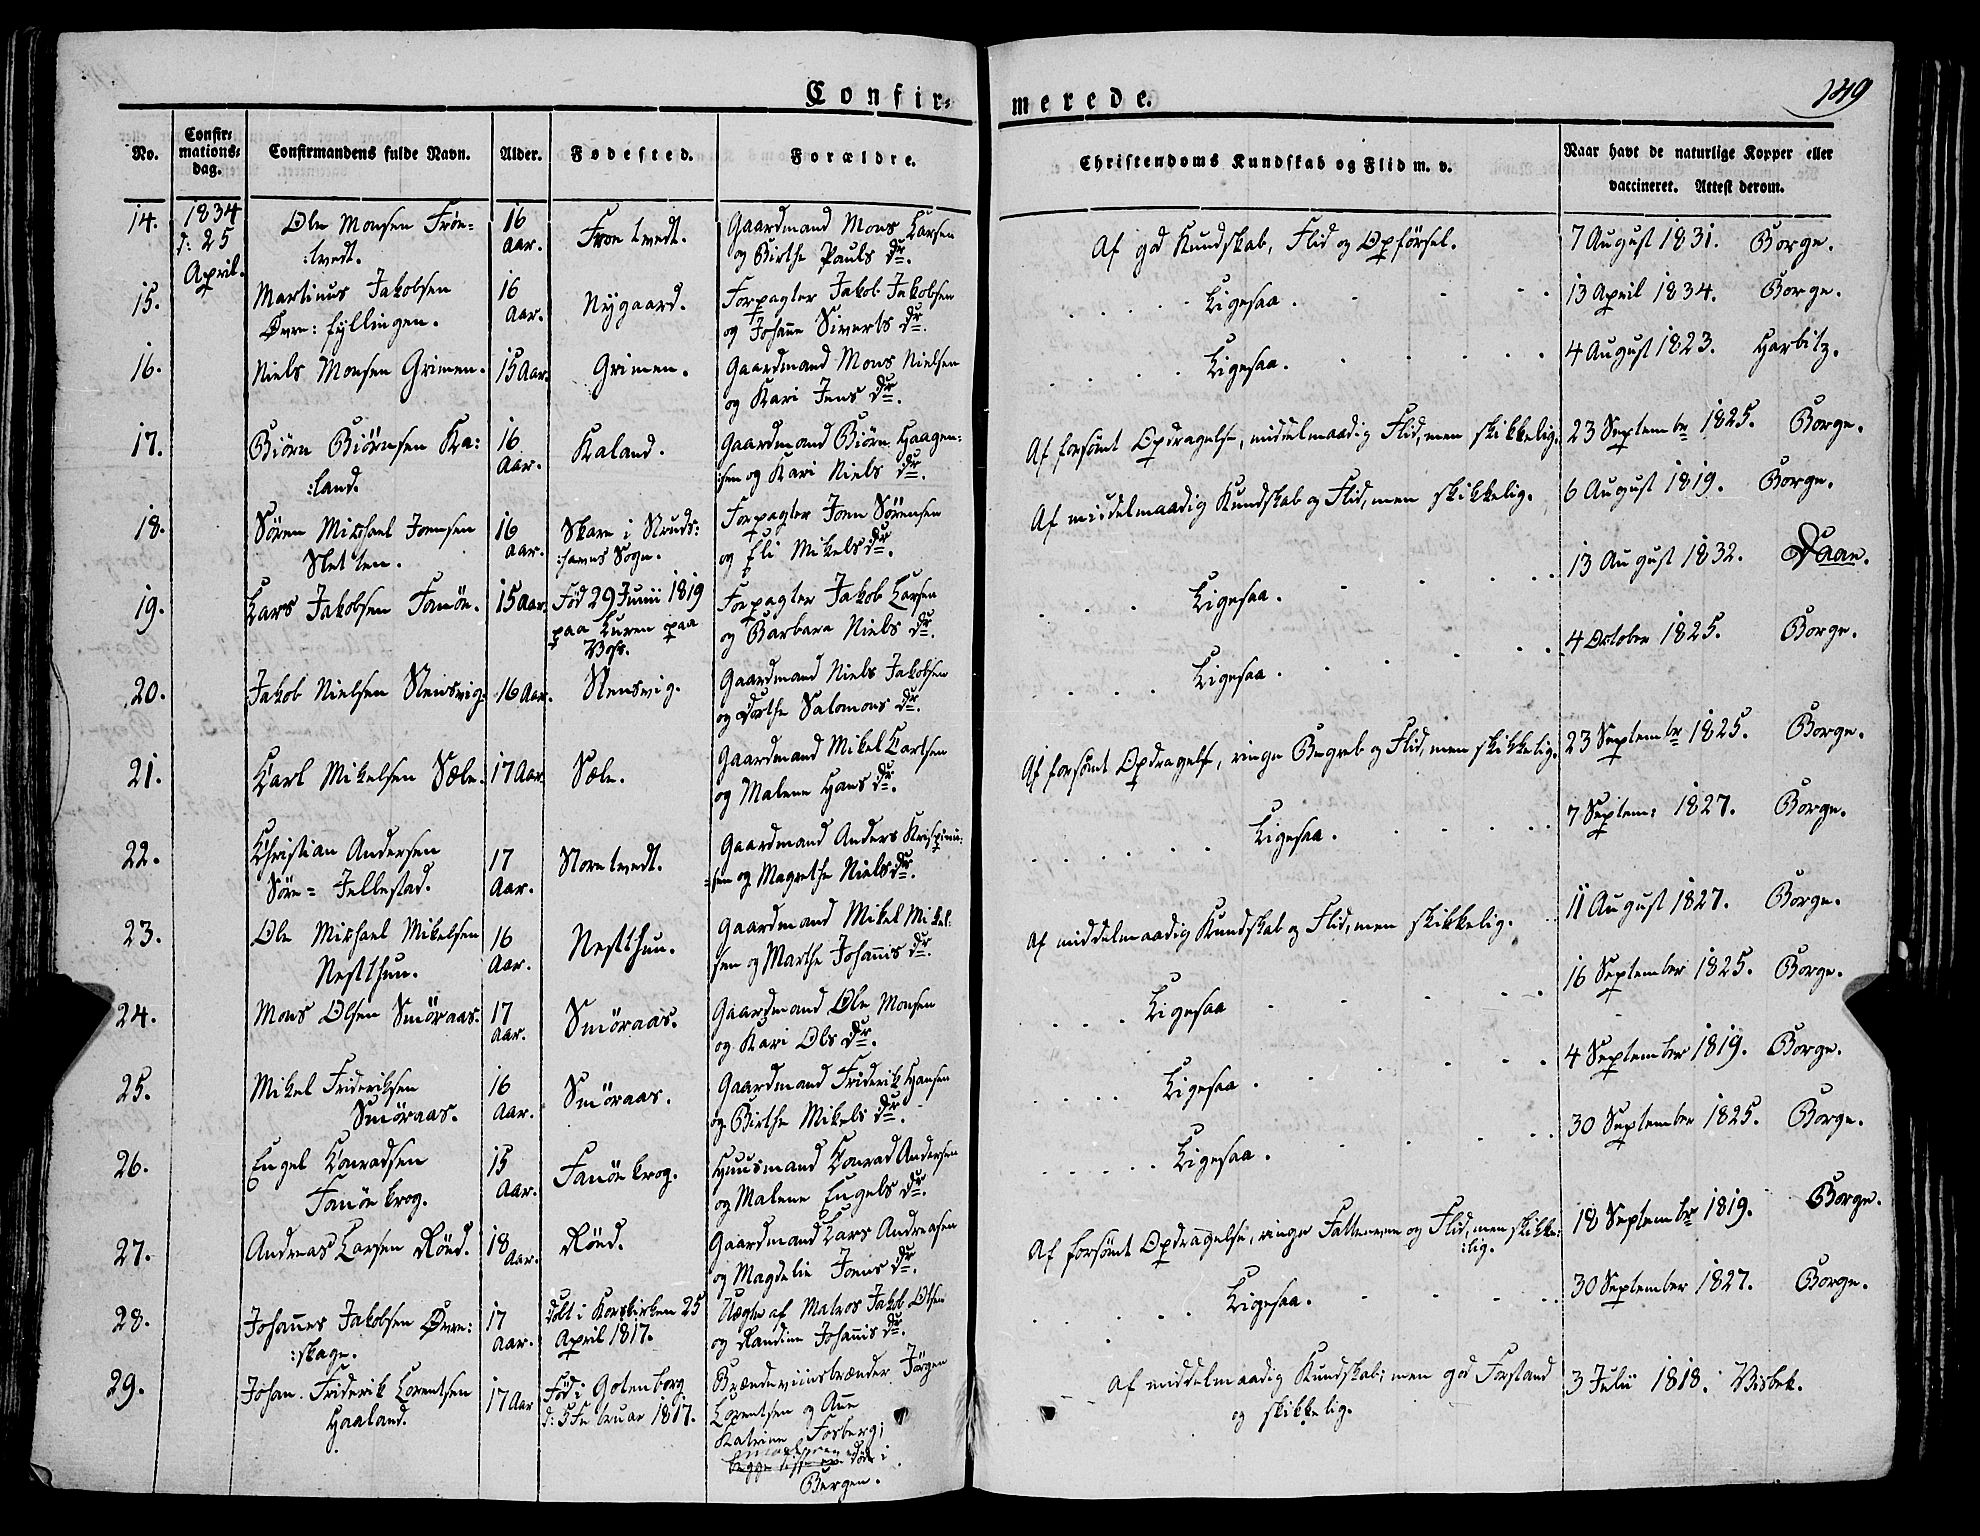 Confir=
merede.
149
No.
Confir=
mations=
dag.
Confirmandens fulde Navn.
Alder.
Fødested.
Forældre.
Christendoms Kundskab og Flid m. v.
Naar havt de naturlige Kopper eller
vaccineret. Attest derom.
14.
1834
d: 25
April.
Ole Monsen Frøn=
:tvedt.
16
Aar.
Frøntvedt.
Gaardmand Mons Larsen
og Birthe Pauls Dr.
Af god Kundskab, Flid og Opförsel.
7 August 1831. Borge.
15.
Martinus Jakobsen
Øvre: Fyllingen.
16
Aar.
Nygaard.
Forpagter Jakob Jakobsen
og Johanne Siverts Dr.
Ligesaa.
13 April 1834. Borge.
16.
Niels Monsen Grimen.
15 Aar.
Grimen.
Gaardmand Mons Nielsen
og Kari Jens Dr.
Ligesaa.
4 August 1823. Harbitz.
17.
Biörn Biörnsen Ka:
:land.
16
Aar.
Kaland.
Gaardmand Biörn Haagen:
:sen og Kari Niels Dr.
Af forsömt Opdragelse, middelmaadig Flid, men skikkelig.
23 Septembr 1825. Borge.
18.
Sören Mikhael Jonsen
Sletten.
16
Aar.
Skare i Struds:
:havns Sogn.
Forpagter Jon Sörensen
og Eli Mikels Dr.
Af middelmaadig Kundskab og Flid, men skikkelig.
6 August 1819. Borge.
19.
Lars Jakobsen Fanöe.
15 Aar.
Fød 29 Junii 1819
paa Luren paa
Vos.
Forpagter Jakob Larsen
og Barbara Niels Dr.
Ligesaa.
13 August 1832. Daae.
20.
Jakob Nielsen Stensvig.
16 Aar.
Stensvig.
Gaardmand Niels Jakobsen
og Dorthe Salomons Dr.
Ligesaa.
4 October 1825. Borge.
21.
Karl Mikelsen Sæle.
17 Aar.
Sæle.
Gaardmand Mikel Carlsen
og Malene Hans Dr.
Af forsömt Opdragelse, ringe Begreb og Flid, men skikkelig.
23 Septembr 1825. Borge.
22.
Christian Andersen
Söre= Jellestad.
17
Aar.
Storetvedt.
Gaardmand Anders Krispinu:
=sen og Magrethe Niels Dr.
Ligesaa.
7 Septem: 1827. Borge.
23.
Ole Mikhael Mikelsen
Nestthun.
16
Aar.
Nestthun.
Gaardmand Mikel Mikel:
sen og Marthe Johannis Dr.
Af middelmaadig Kundskab og Flid, men skikkelig.
11 August 1827. Borge.
24.
Mons Olsen Smöraas.
17
Aar.
Smöraas.
Gaardmand Ole Monsen
og Kari Ols Dr.
Ligesaa
16 September 1825. Borge.
25.
Mikel Frideriksen
Smöraas.
16
Aar.
Smöraas.
Gaardmand Friderik Hansen
og Birthe Mikels Dr.
Ligesaa.
4 September 1819. Borge.
26.
Engel Konradsen
Fanöe krog.
15
Aar.
Fanöe krog.
Huusmand Konrad Andersen
og Malene Engels Dr.
Ligesaa.
30 September 1825. Borge.
27.
Andreas Larsen Röed.
18
Aar.
Röed.
Gaardmand Lars Andreasen
og Magdeli Jons Dr.
Af forsömt Opdragelse, ringe Fatteevne og Flid, men skikke:
:lig.
18 Septembr 1819. Borge.
28.
Johannes Jakobsen Øvre:
:skage.
17
Aar.
Døbt i Korskirken 25
April 1817.
Uægte af Matros Jakob Olsen
og Randine Johannis Dr.
Ligesaa.
30 September 1827. Borge.
29.
Johan Friderik Lorentsen
Haaland.
17 Aar
Fød i Gotenborg
d: 5 Februar 1817.
Brændeviinsbrænder Jörgen
Lorentsen og Ane
Katrine Fosberg;
begge
døde i
Bergen.
Af middelmaadig Kundskab; men god Forstand
og skikkelig.
3 Julii 1818. Visbek.